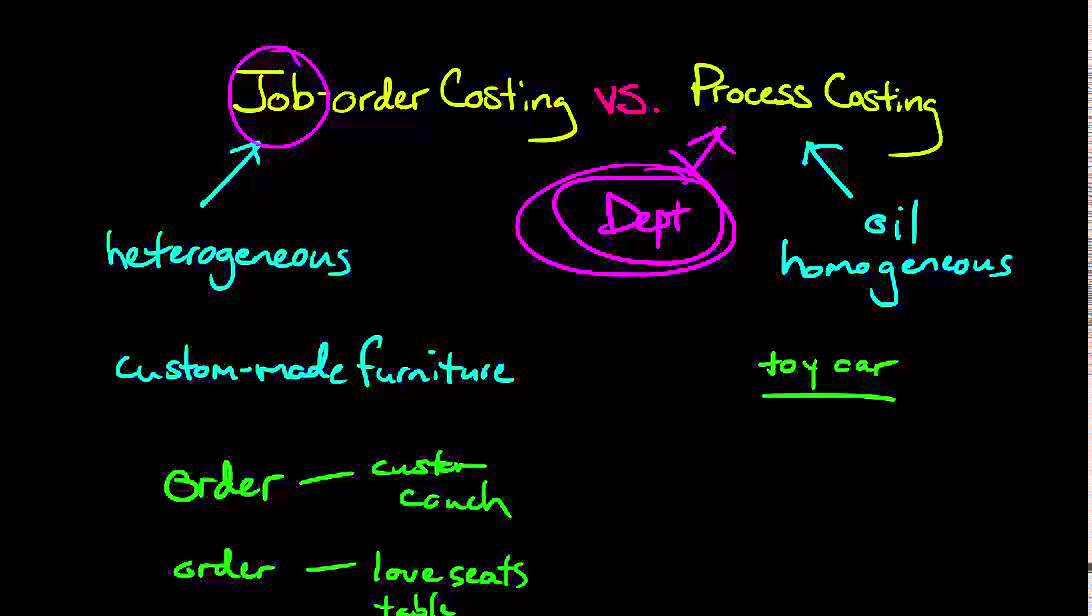 Job-order Costing vs. Process Costing
Dept
heterogeneous
oil
homogeneous
custom-made furniture
toy car
order — custom
couch
order — love seats
table